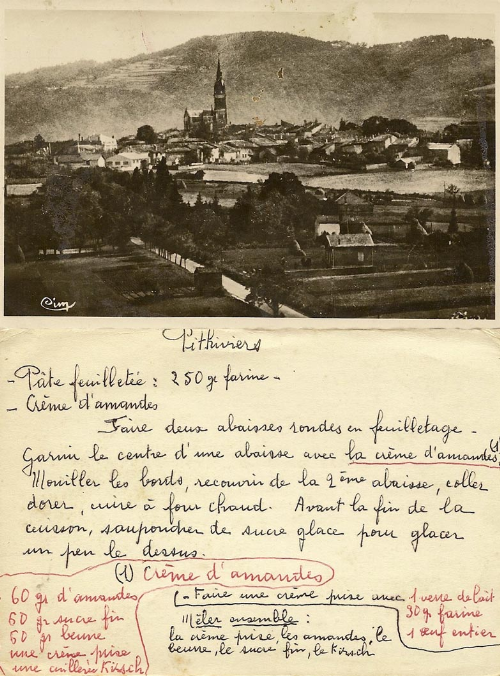 Cim
Pithiviers
- Pâte feuilletée : 250 gr farine -
- Crème d'amandes
Faire deux abaisses rondes en feuilletage -
Garnir le centre d'une abaisse avec la crème d'amandes (1)
Mouiller les bords, recouvrir de la 2ème abaisse, coller
dorer, cuire à four chaud. Avant la fin de la
cuisson, saupoudrer de sucre glace pour glacer
un peu le dessus.
(1) Crème d'amandes
60 gr d'amandes
60 gr sucre fin
60 gr beurre
une crème prise
une cuillerée Kirsch
- Faire une crème prise avec
1 verre de lait
30 gr farine
1 œuf entier
Mêler ensemble :
la crème prise, les amandes, le
beurre, le sucre fin, le Kirsch